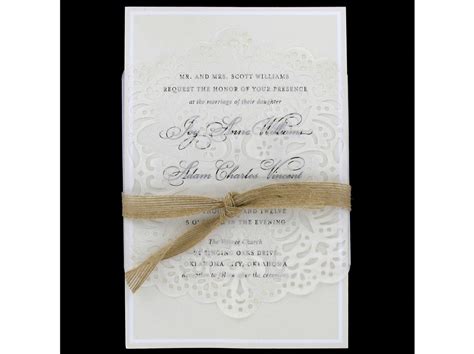 MR. AND MRS. SCOTT WILLIAMS
REQUEST THE HONOR OF YOUR PRESENCE
at the marriage of their daughter
Joy Anne Williams
Adam Charles Vincent
THOUSAND AND TWELVE
The Village Church
SINGING OAKS DRIVE
OKLAHOMA CITY, OKLAHOMA
after the ceremony